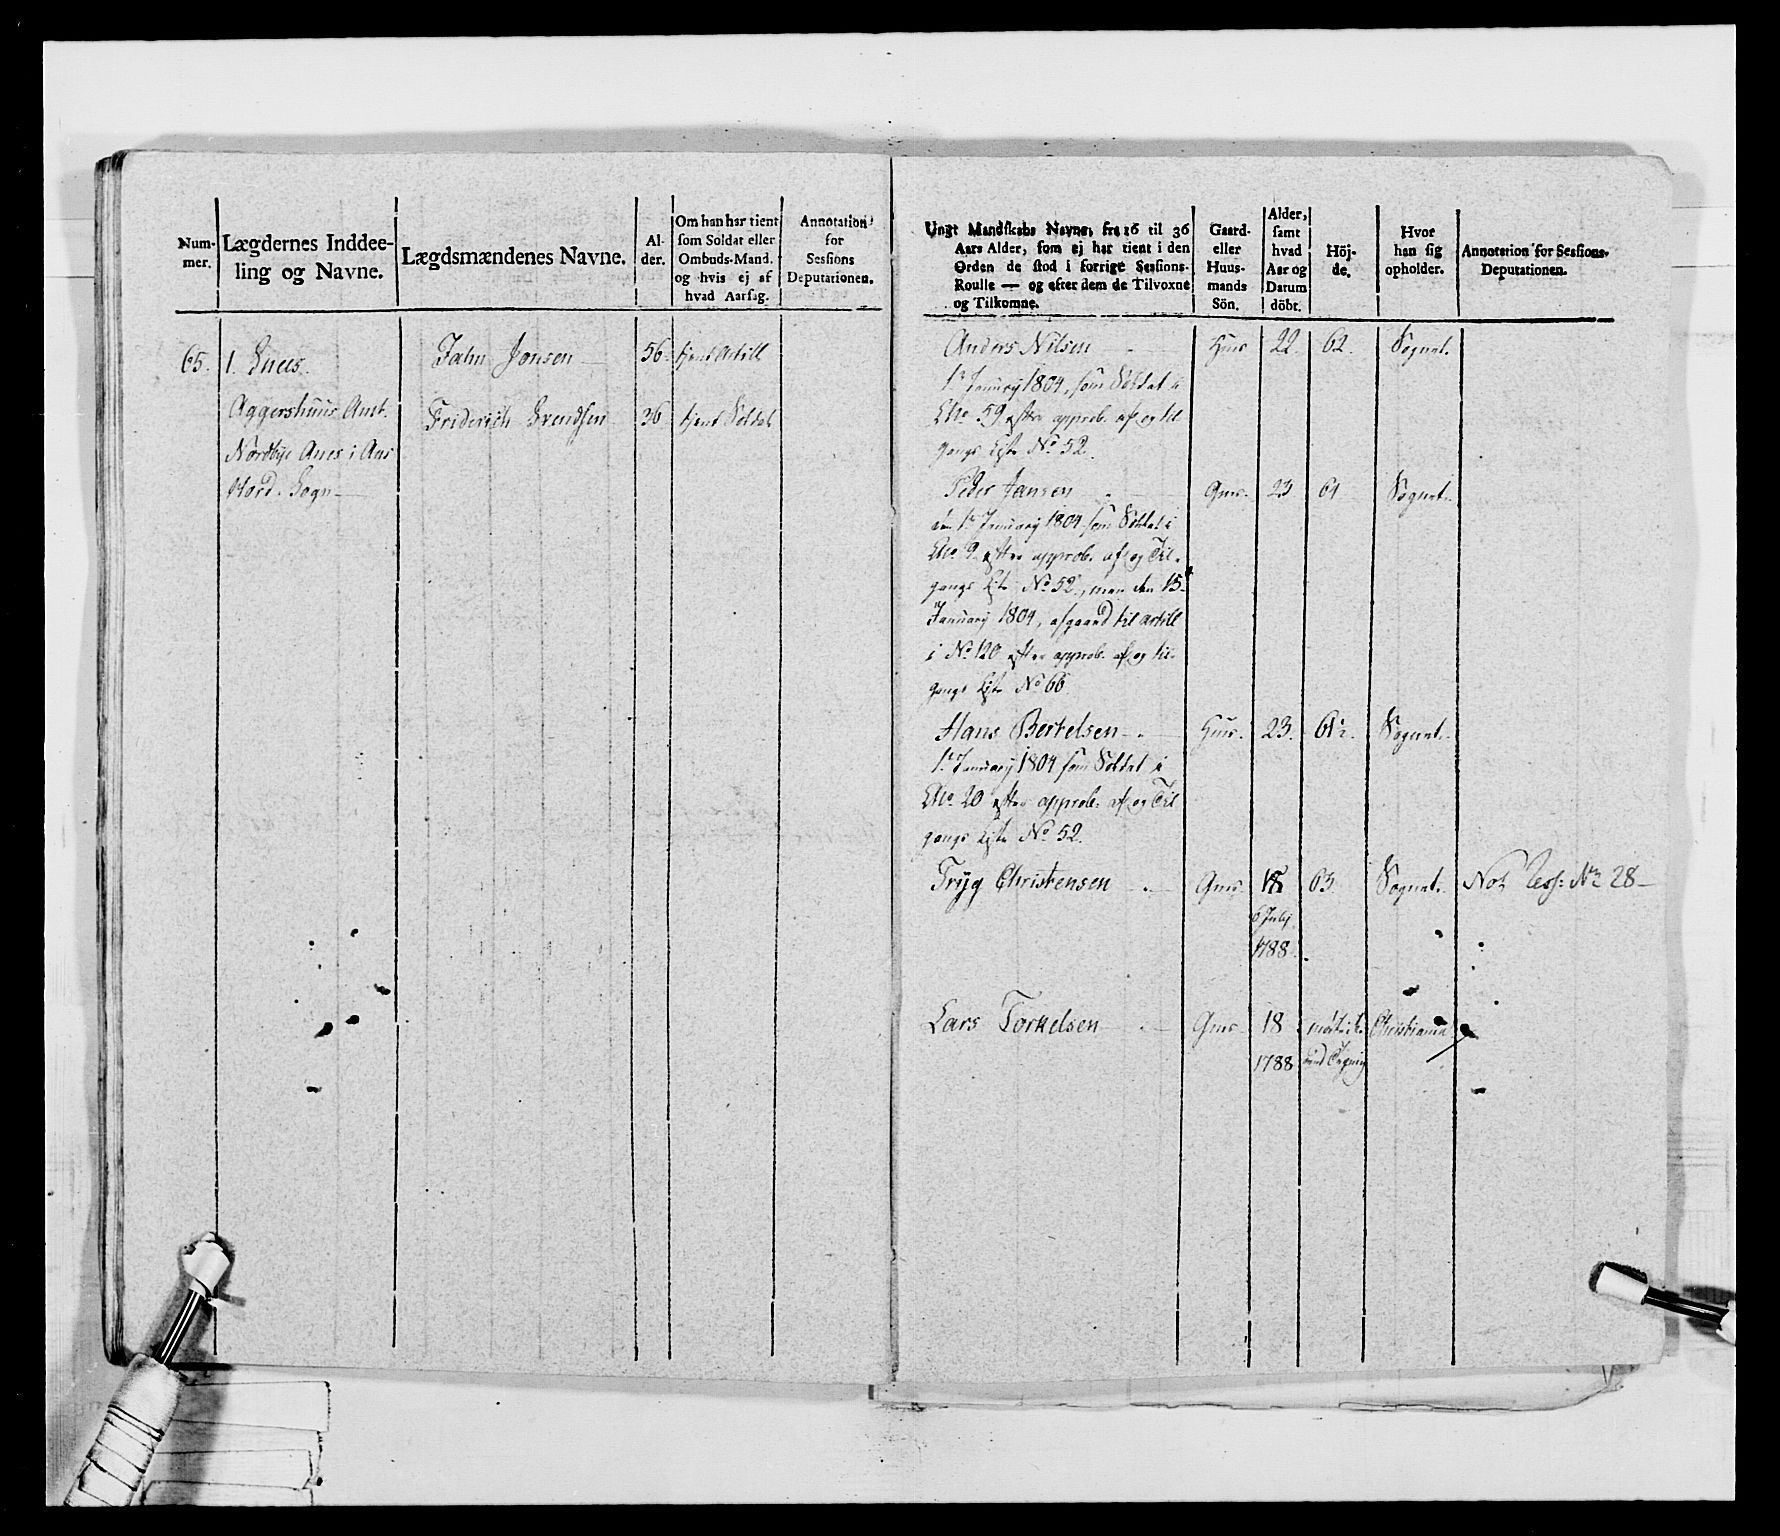 Num-
mer.
Lægdernes Inddee-
ling og Navne.
Lægdsmændenes Navne.
Al-
der.
Om han har tient
som Soldat eller
Ombuds-Mand.
og hvis ej af
hvad Aarsag.
Annotation
for
Sessions
Deputationen.
65.
1. Enees.
Aggershuus Amt.
Nordbye Anes i Aas
Hord. Sogn
Jahn Jonsen
56.
tjent Artill
Friderich Svendsen
36
tjent Soldat
Ungt Mandskabs Navne, fra 16 til 36
Aars Alder, som ej har tient i den
Orden de stod i forrige Sessions-
Roulle — og efter dem de Tilvoxne
og Tilkomne.
Gaard-
eller
Huus-
mands
Sön.
Alder,
samt
hvad
Aar og
Datum
döbt.
Höj-
de.
Hvor
han sig
opholder.
Annotation for Sessions-
Deputationen.
Anders Nilsen
Huus
22.
62.
Sognet.
1te January 1804, som Soldat i
LNo. 59 efter approb. af og til
gangs Liste No. 52.
Peder Jansen
Gms.
23
61
Sognet.
den 1te January 1804 som Soldat i
LNo. 9 efter approb. af og Til-
gangs Liste No. 52, men den 15
January 1804, afgaaed til artill
i No. 120 efter approb. af og til-
gangs Liste No 66
Hans Bertelsen
Huus.
23.
61½.
Sognet.
1te January 1804 som Soldat i
LNo. 20 efter approb. af og Til
gangs Liste No. 52.
Tryg Christensen
Gms.
18
63.
Sognet.
Not Sess: No 28
6 July
1788.
Lars Torkelsen
Gms.
18
Christiania
1788